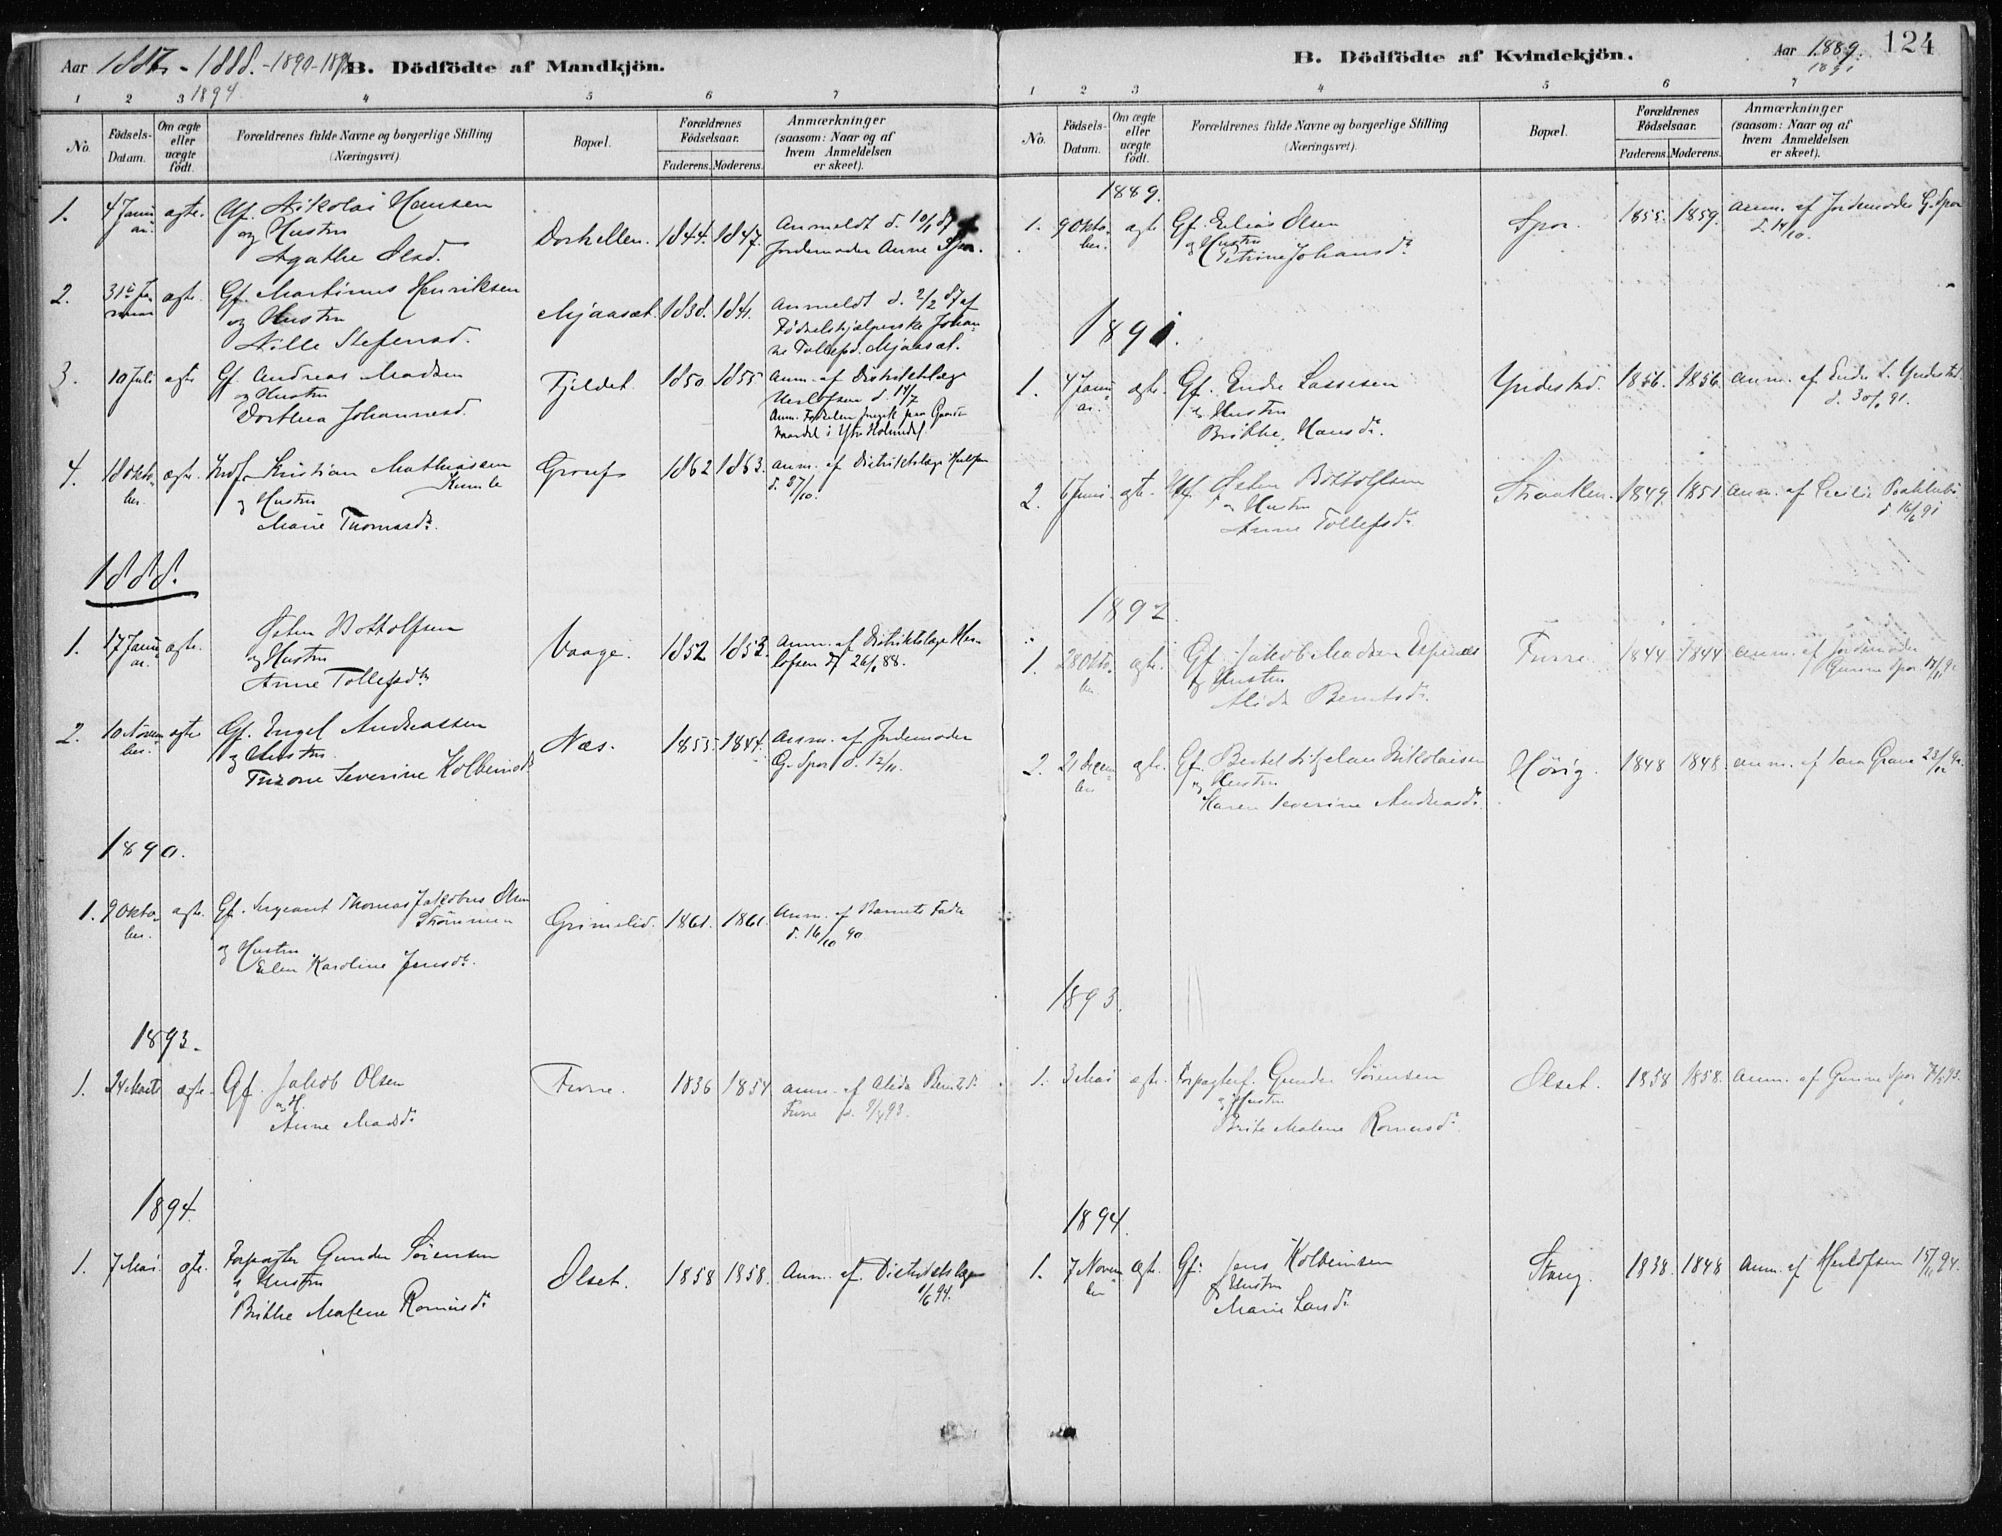 Aar 1887 - 1888. - 1890 - 1893
B. Dödfödte af Mandkjön.
1894
1 2 3 4 5 6 7
No.
Födsels-
Datum.
Om ægte
eller
uægte
födt.
Forældrenes fulde Navne og borgerlige Stilling
(Næringsvei).
Bopæl.
Forældrenes
Födselsaar.
Faderens. Moderens.
Anmærkninger
(saasom: Naar og af
hvem Anmeldelsen
er skeet).
1. 4 Janu ægte. Gf. Nikolai Hansen
ar. og Hustru
Agathe Olsd.
1844. 1847.
Anmeldt d. 10/1 87 af
Jordemoder Anne Spor.
2. 31te Ja ægte. Gf. Martinus Henriksen
nuar og Hustru
Nille Stefensd.
Mjaaset. 1838. 1841.
Anmeldt d. 2/2 87 af
Fødselshjælperske Johan
ne Tollefsd. Mjaaset.
3. 10 Juli ægte Gf. Andreas Madsen
og Hustru
Dorthea Johannesd.
Fjeldet. 1850 1855
Anm. af Distriktslæge
Herlofsen d. 14/7
4. 18 Okto ægte. Kristian Mathiassen
ber. Kumle
og Hustru
Marie Thomasd.
1862 1863.
Anm. af Distriktslæge Herlofsen
d. 27/10.
1888.
1. 17 Janu ægte. Østen Bottolfsen
ar. og Hustru
Anne Tollefsdtr
Vaage. 1852 1853.
Anm. af Distriktslæge Her
lofsen d. 26/1 88.
2. 10 Novem ægte Gf. Engel Andreassen
ber. og Hustru
Severine Kolbeinsd.
Næs. 1855. 1844.
Anm. af Jordemoder
G. Spor d. 12/11.
1890.
1. 9 Okto ægte. Gf. Sergeant Thomas Jakobus Olsen
ber. Strømmen
og Hustru
Elen Karoline Jensdr.
Grimelid. 1861. 1861.
Anm. af Barnets Fader
d. 16/10 90
1893.
1. 24 Marts ægte. Gf. Jakob Olsen
og H.
Anne Madsdr
Furre. 1836 1854
anm. af Alida Berntsdr.
Furre d. 9/4 93.
1894.
1. 7 Mai ægte. Forpagter Gunder Sörensen
og Hustru
Brithe Malene Rasmusdr
Ølset. 1858 1858.
Anm. af Distriktslægen
1/6 94.
B. Dödfödte af Kvindekjön.
Aar 1889. 124
1891
1 2 3 4 5 6 7
No.
Födsels-
Datum.
Om ægte
eller
uægte
födt.
Forældrenes fulde Navne og borgerlige Stilling
(Næringsvei).
Bopæl.
Forældrenes
Födselsaar.
Faderens. Moderens.
Anmærkninger
(saasom: Naar og af
hvem Anmeldelsen
er skeet).
1889.
1. 9 Okto ægte Gf. Elias Olsen
ber. og Hustru
Petrine Johansdr
Spor. 1855. 1859.
anm. af Jordemoder G. Spor
d. 14/10.
1891.
1. 4 Janu ægte. Gf. Endre Lassesen
ar. og Hustru
Brithe Hansdr.
Yndestad. 1856. 1856.
anm. af Endre L. Yndestad
d. 30/1 91.
2. 6 Juni ægte. Østen Bottolfsen
og Hustru
Anne Tollefsdr
1849. 1851.
anm. af Cecilie
d. 16/6 91
1892.
1. 28 Okto ægte. Gf. Jakob Madsen Espenes
ber. og Hustru
Alida Berntsdr.
Furre. 1844 1844
anm. af Jordemoder
Gunne Spor
2. 21 Decem ægte. Gf. Bertel Nikolaisen
ber og Hustru
Karen Severine Andreasdr.
Hövig. 1848 1848.
1893.
1. 3 Mai ægte. Forpagter Gunder Sörensen
og Hustru
Brite Malene Rasmusdr.
Ølset. 1858 1858.
anm. af Gunne Spor 7/5 93.
1894.
1. 7 Novem ægte. Gf. Jens Kolbeinsen
ber og Hustru
Marie Larsdr
Stang. 1838 1848
anm. af Herlofsen 15/11 94.